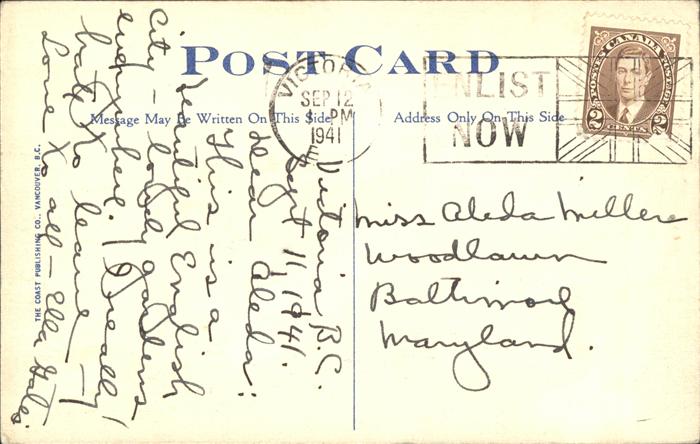 POST CARD
Message May Be Written On This Side
Address Only On This Side
VICTORIA
SEP 12
PM
1941
ENLIST
NOW
POSTES CANADA POSTAGE
2 CENTS 2
Victoria B.C.
Sept 11, 1941.
Dear Aleda:
This is a
beautiful English
City - lovely gardens
everywhere. I really
hate to leave -
Love to all - Ella
Miss Aleda Miller
Woodlawn
Baltimore
Maryland.
THE COAST PUBLISHING CO., VANCOUVER, B.C.